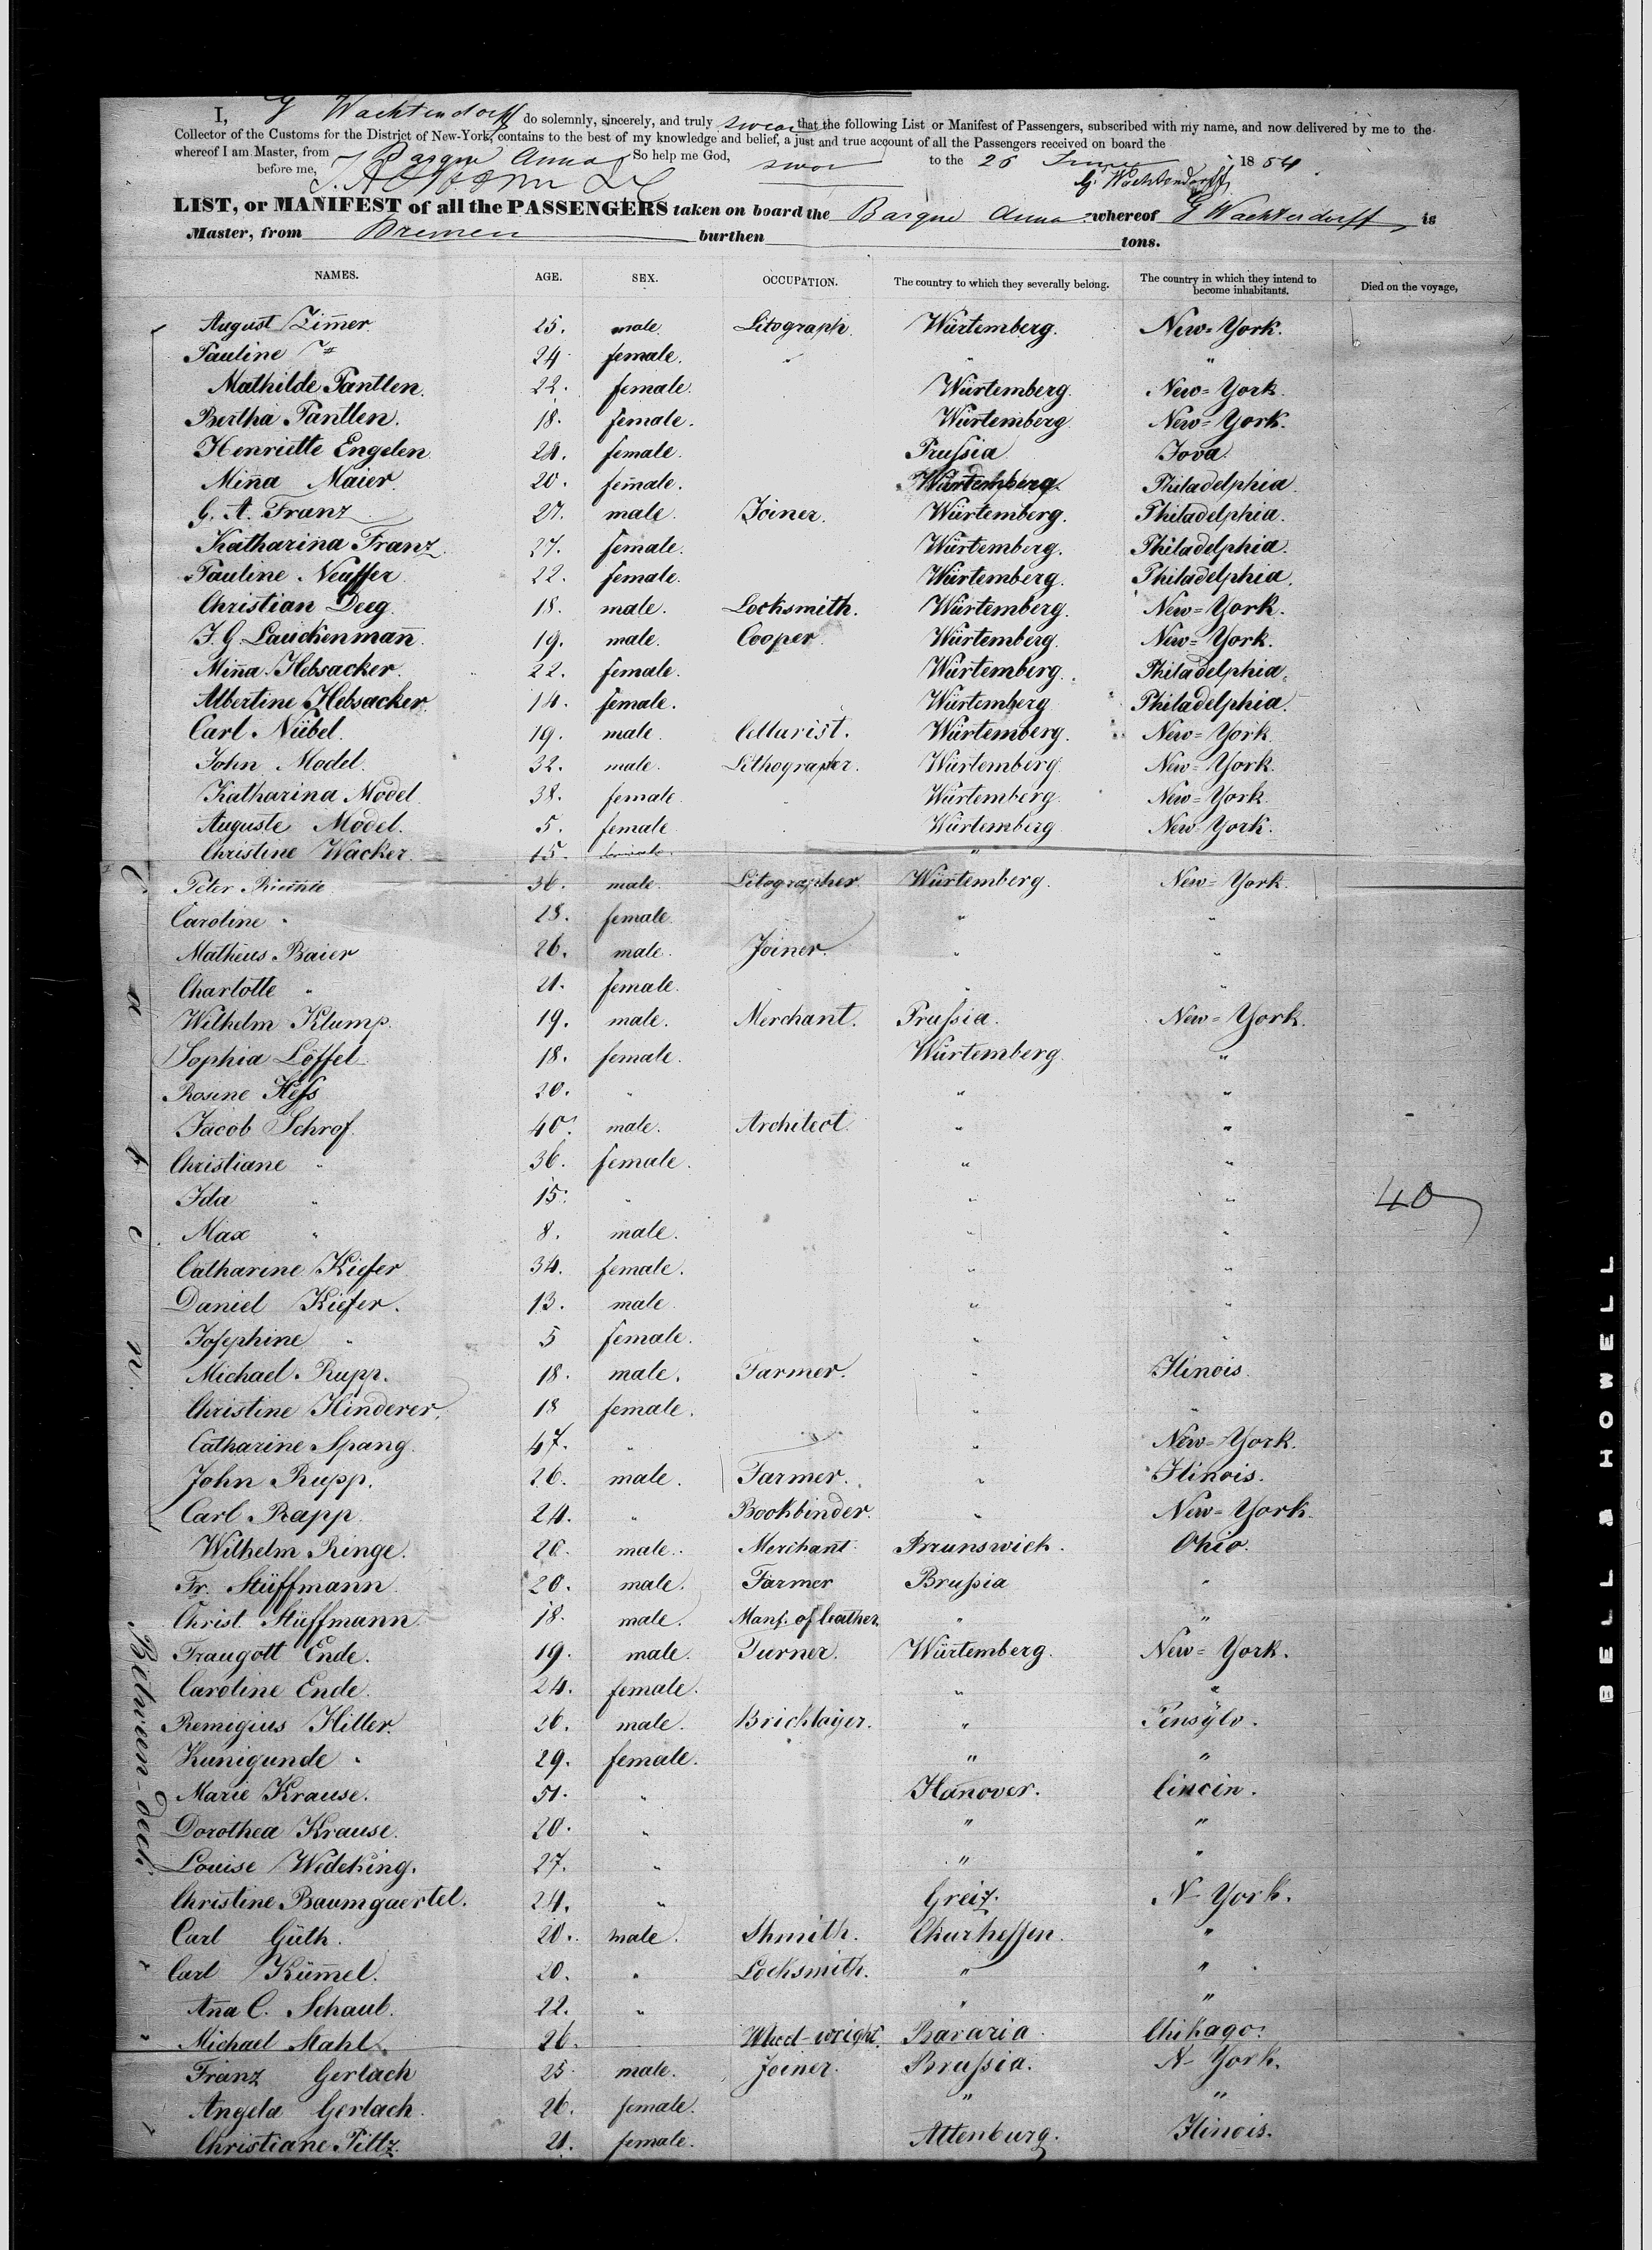 I, G Wachtendorff do solemnly, sincerely, and truly swear that the following List or Manifest of Passengers, subscribed with my name, and now delivered by me to the
Collector of the Customs for the District of New-York, contains to the best of my knowledge and belief, a just and true account of all the Passengers received on board the
whereof I am Master, from Barque Anna So help me God, swor to the 26 June 1854
before me, G. Wachtendorff
LIST, or MANIFEST of all the PASSENGERS taken on board the Barque Anna whereof G Wachtendorff is
Master, from Bremen burthen tons.
NAMES. AGE. SEX. OCCUPATION. The country to which they severally belong. The country in which they intend to become inhabitants. Died on the voyage,
August Zim̄er 25. male Litograph. Würtemberg. New-York.
Pauline " 24 female. " " "
Mathilde Pantlen. 22. female. Würtemberg. New-York.
Bertha Pantlen. 18. female. Würtemberg New-York.
Henriette Engelen 24. female. Prußia Iova.
Min̄a Maier 20. female. Würtemberg Philadelphia.
G. A. Franz 27. male. Joiner. Würtemberg. Philadelphia.
Katharina Franz 27. female. Würtemberg. Philadelphia.
Pauline Neuffer 22. female. Würtemberg. Philadelphia.
Christian Deeg. 18. male. Locksmith. Würtemberg. New-York.
J. G. Lauckenman̄. 19. male. Cooper Würtemberg. New-York.
Min̄a Hebsacker. 22. female. Würtemberg. Philadelphia.
Albertine Hebsacker 14. female. Würtemberg Philadelphia.
Carl Nübel. 19. male Würtemberg. New-York.
John Model. 32. male. Lithographer. Würtemberg New-York.
Katharina Model 38. female Würtemberg. New-York.
Auguste Model. 5. female Würtemberg New-York.
Christine Wacker. 15. female "
Peter 36. male. Litographer Würtemberg. New-York.
Caroline " 28. female. " "
Matheus Baier 26. male. Joiner. " "
Charlotte " 21. female. " "
Wilhelm Klump. 19. male. Merchant. Prußia. New-York.
Sophia Löffel 18. female. Würtemberg "
Rosine Heß 20. " " "
Jacob Schrof. 40. male. Architect. " "
Christiane " 36. female. " "
Ida " 15. " " " 40
Max " 8. male. " "
Catharine Kiefer 34. female. " "
Daniel Kiefer. 13. male " "
Josephine " 5 female. " "
Michael Rupp. 18. male. Farmer. " Ilinois.
Christine Hinderer. 18 female. " "
Catharine Spang. 47. " " New-York.
John Rupp. 26. male. Farmer. " Ilinois.
Carl Rapp 24. " Bookbinder. " New-York.
Wilhelm Ringe. 20. male. Merchant Brunswick. Ohio.
Fr. Stüffmann. 20. male. Farmer Brußia "
Christ. Stüffmann 18. male. Manf. of leather. " "
Traugott Ende. 19. male. Turner. Würtemberg. New-York.
Caroline Ende. 24. female. " "
Remigius Hiller. 26. male. Bricklayer. " Pensylv.
Kunigunde " 29. female. " "
Marie Krause. 51. " Hanover. Cincin.
Dorothea Krause. 20. " " "
Louise Wedeking. 27. " " "
Christine Baumgaertel. 24. " Greiz. N-York.
Carl Güth. 20. male. Shmith. Churhessen. "
Carl Küm̄el. 20. " Locksmith. " "
An̄a C. Schaub. 22. " " "
Michael Stahl 26. Wheel-wright. Bavaria. Chikago.
Franz Gerlach 25. male. Joiner. Brußia. N-York.
Angela Gerlach. 26. female. " "
Christiane Piltz. 21. female. Altenburg. Ilinois.
Cajuten.
Between-deck
BELL & HOWELL